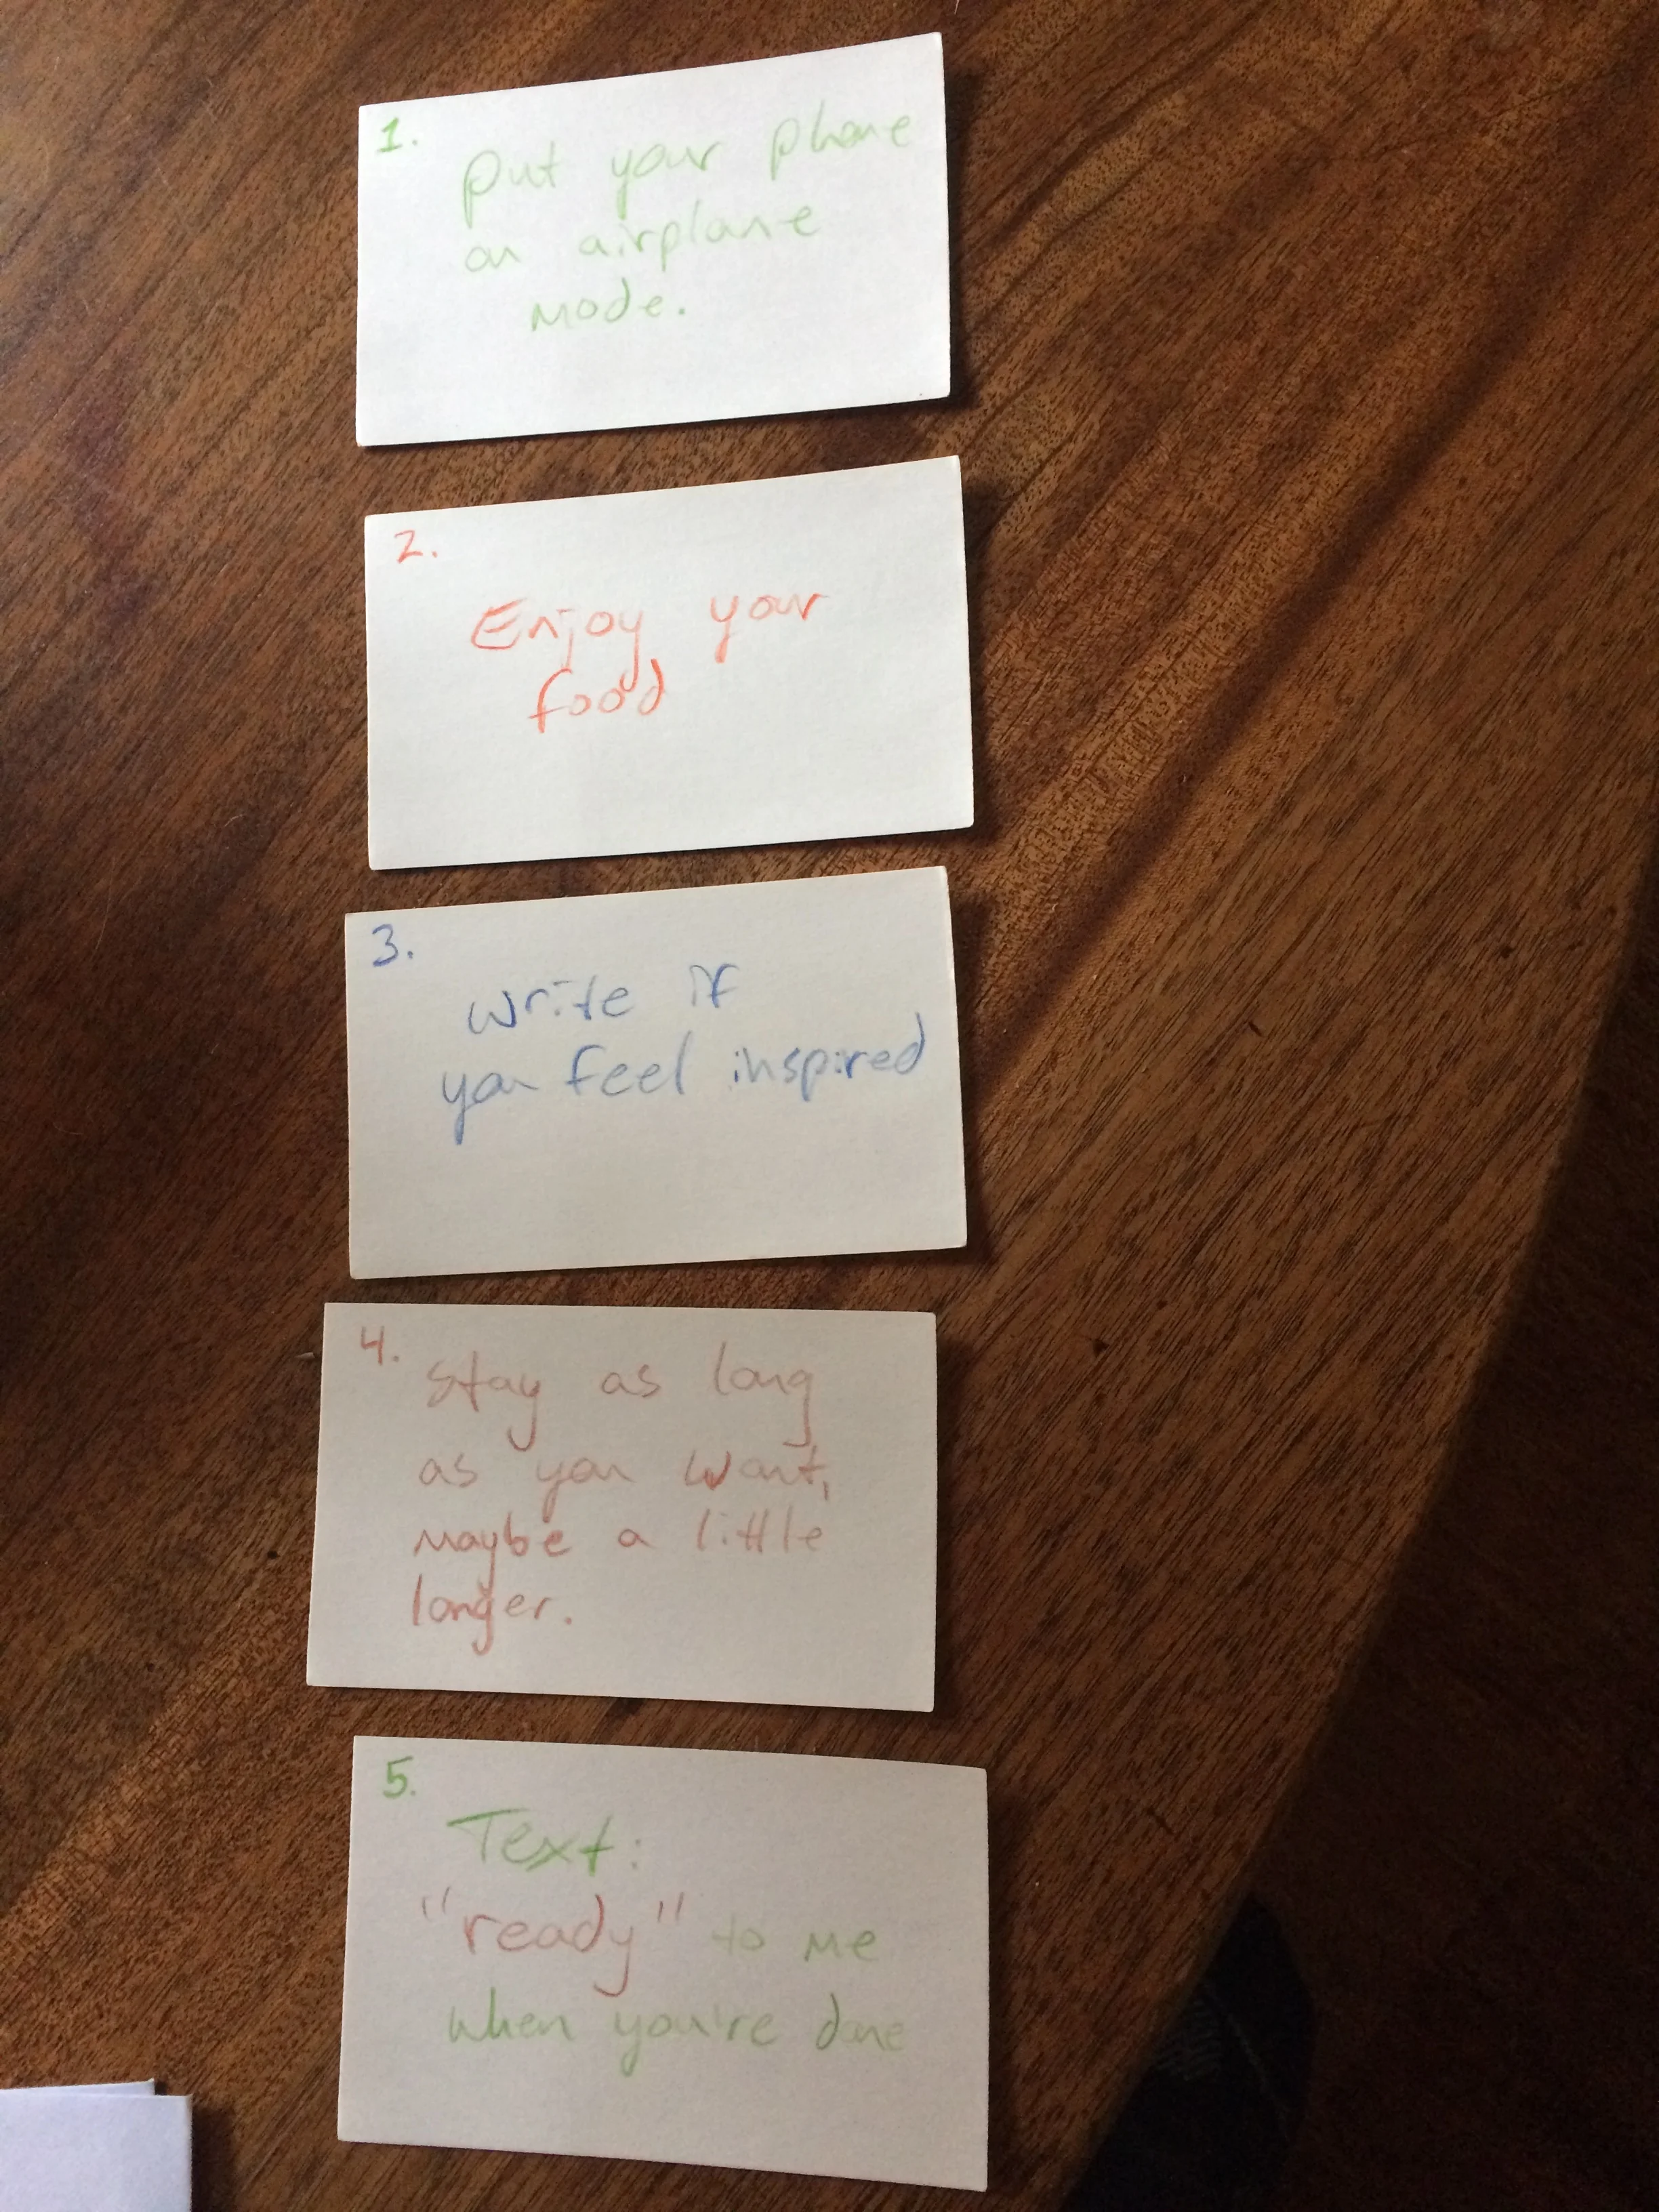 1.
put your phone
on airplane
mode.
2.
Enjoy your
food
3.
write if
you feel inspired
4.
stay as long
as you want,
maybe a little
longer.
5.
Text:
"ready" to me
when you're done